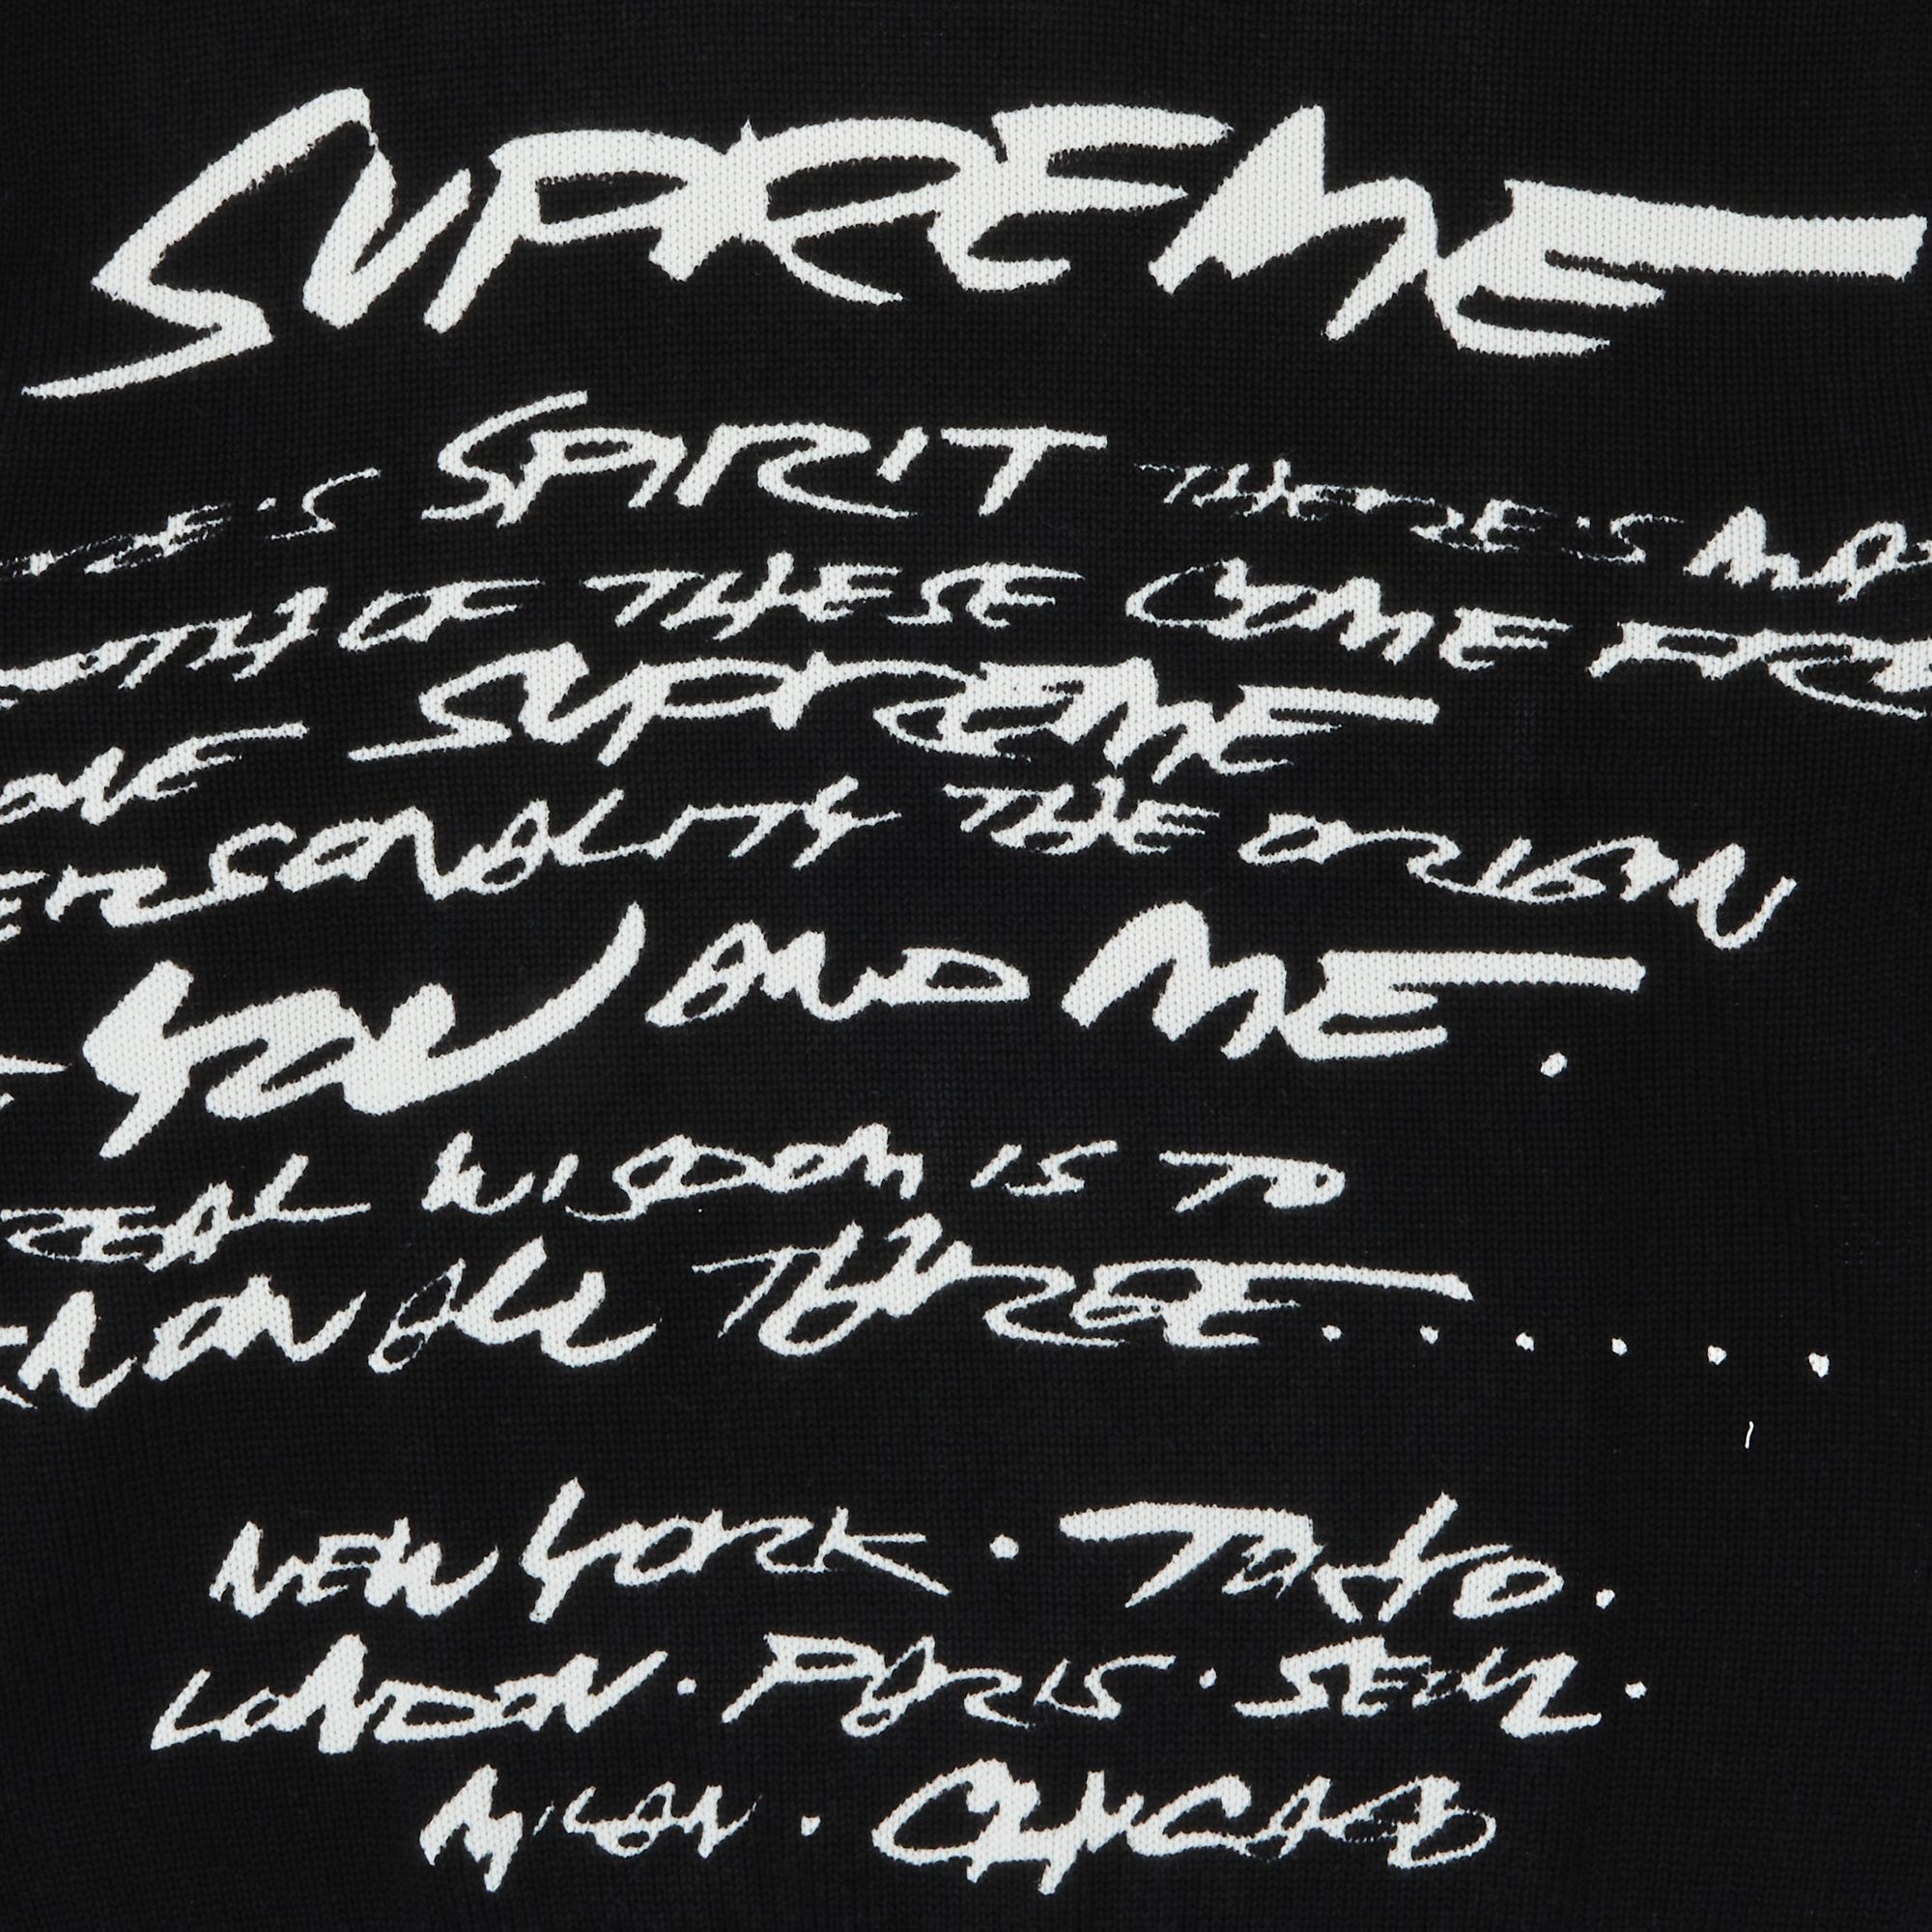 SUPREME
RE'S SPIRIT THERE'S MA
OTH OF THESE COME FRO
ONE SUPREME
ERSONALITY THE ORIGIN
YOU AND ME.
REAL WISDOM IS TO
ON ALL THREE......
NEW YORK · TOKYO.
LONDON · PARIS · SEOUL.
MILAN · CHICAGO